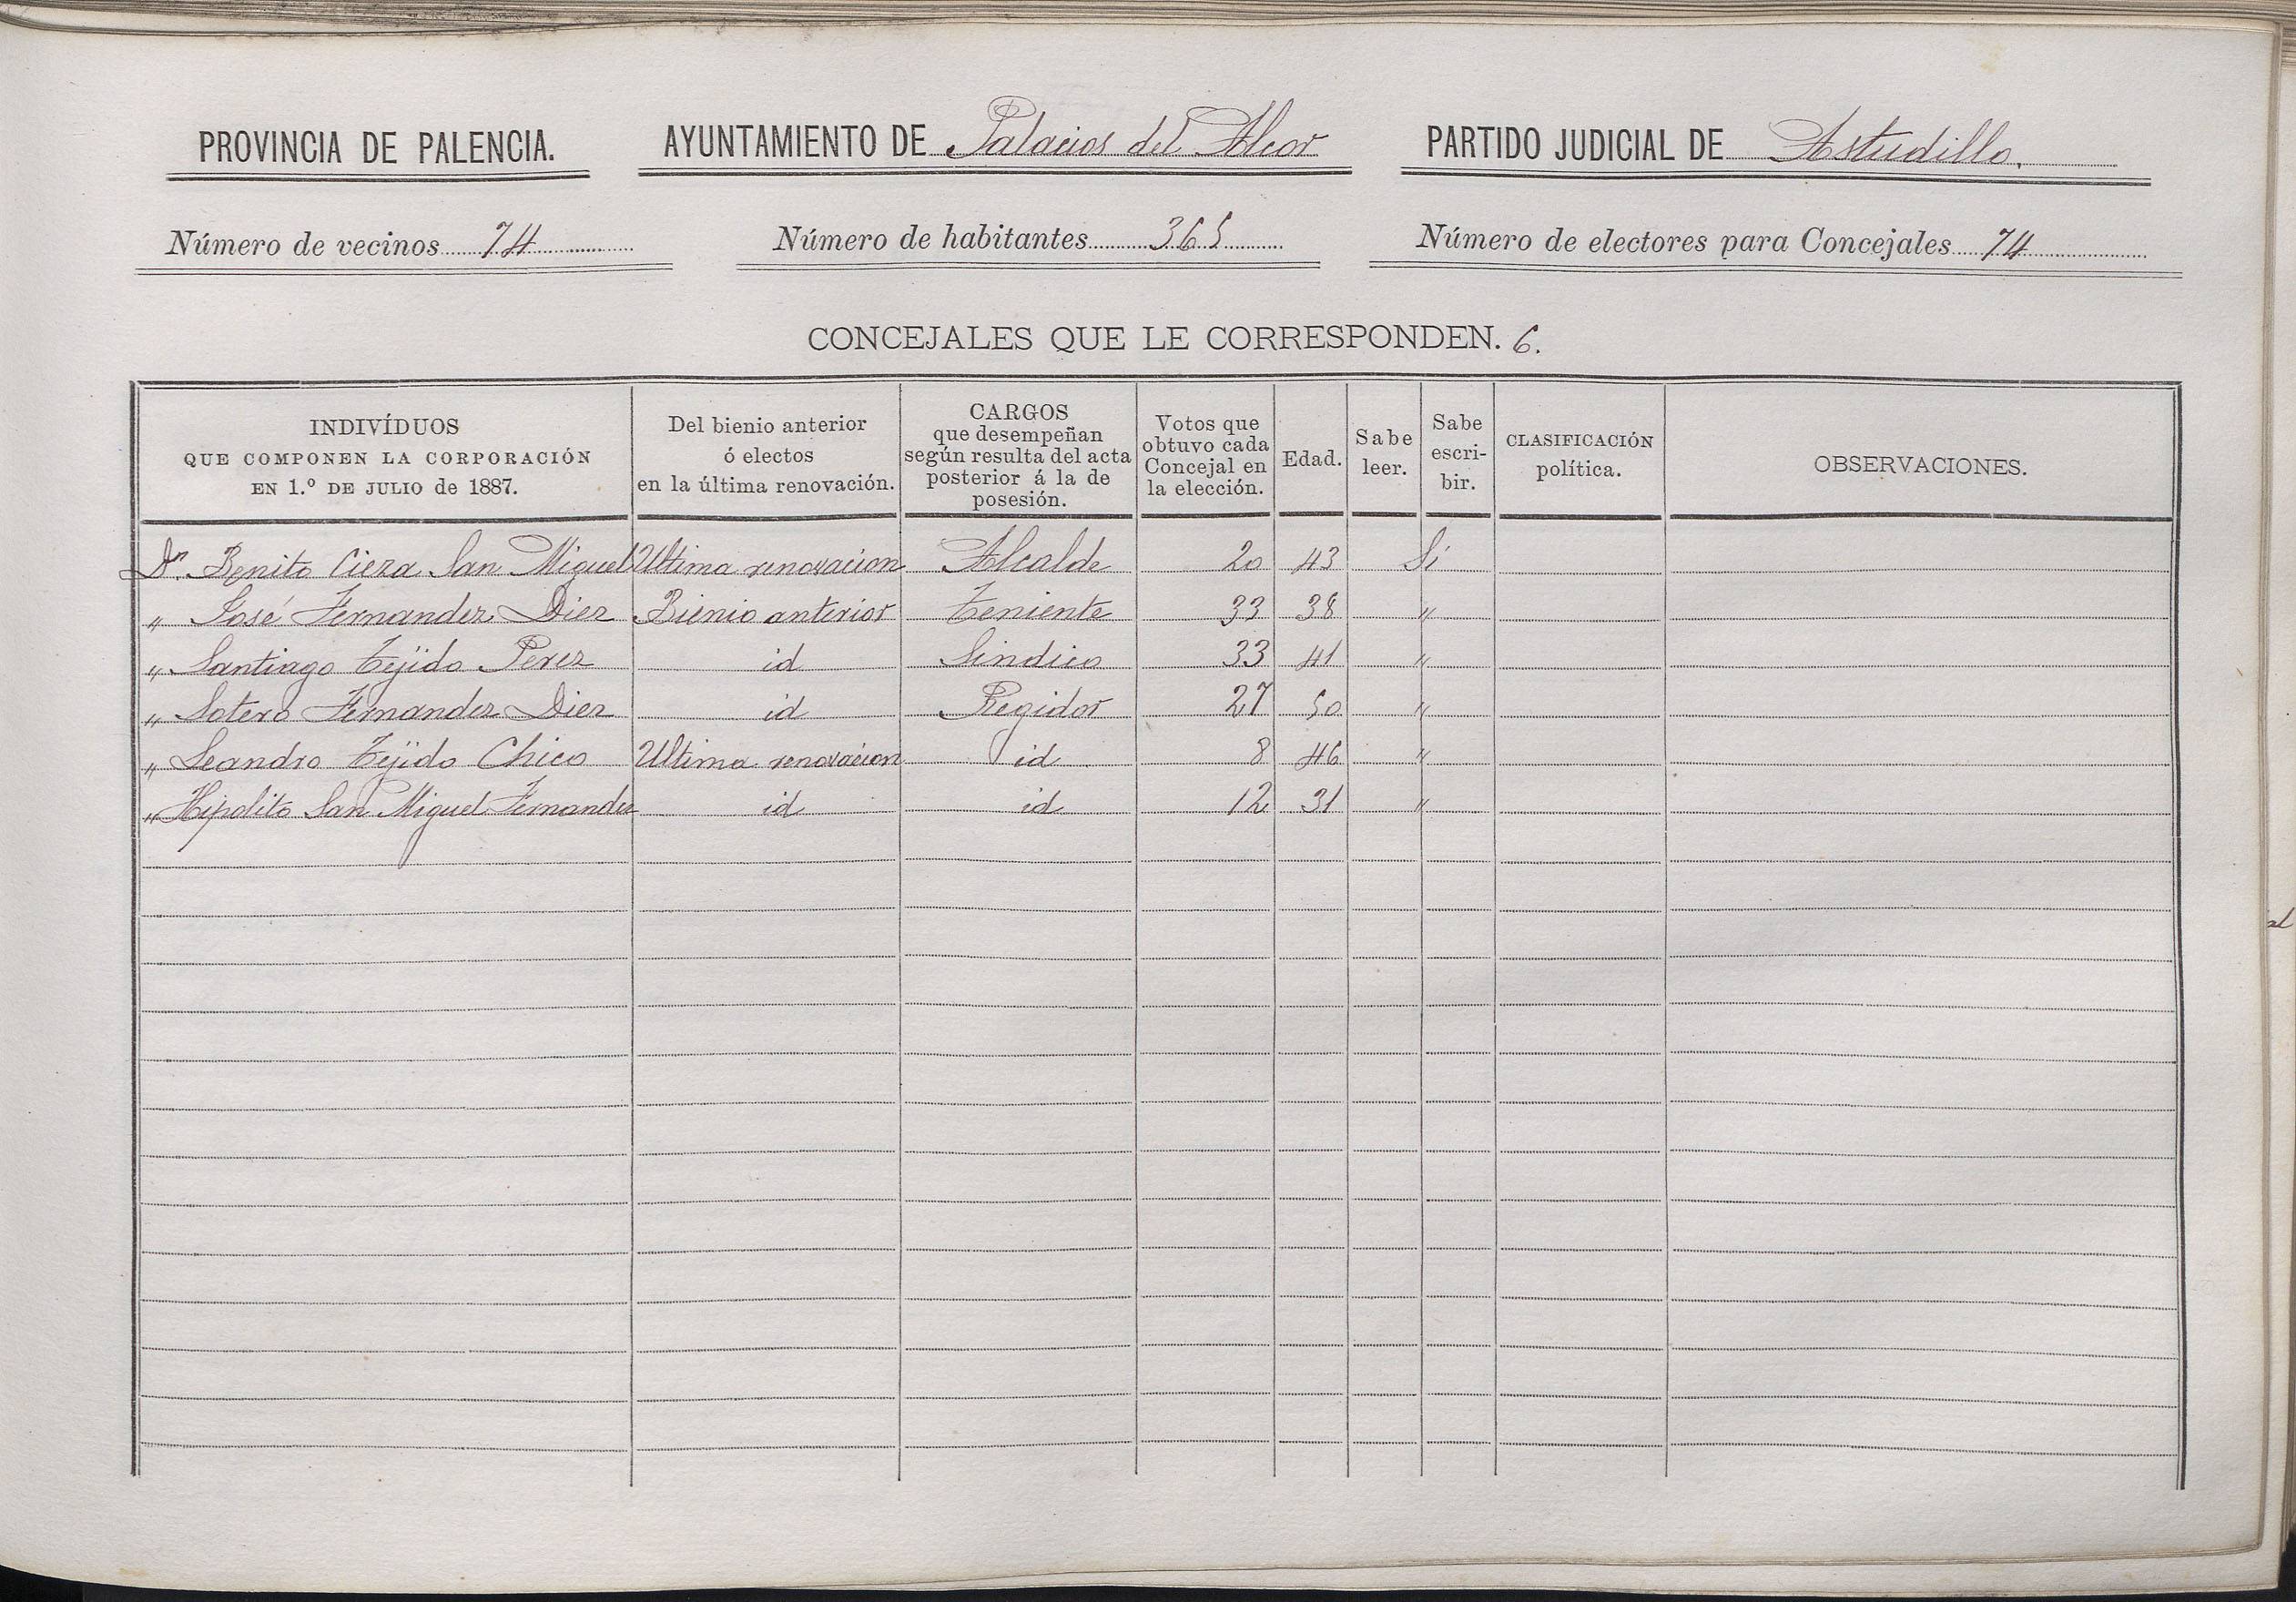 PROVINCIA DE PALENCIA. AYUNTAMIENTO DE Palacios del Alcor PARTIDO JUDICIAL DE Astudillo.
Número de vecinos 74 Número de habitantes 365 Número de electores para Concejales 74
CONCEJALES QUE LE CORRESPONDEN. 6.
INDIVÍDUOS
QUE COMPONEN LA CORPORACIÓN
EN 1.º DE JULIO de 1887.
Del bienio anterior
ó electos
en la última renovación.
CARGOS
que desempeñan
según resulta del acta
posterior á la de
posesión.
Votos que
obtuvo cada
Concejal en
la elección.
Edad.
Sabe
leer.
Sabe
escri-
bir.
CLASIFICACIÓN
política.
OBSERVACIONES.
Dn. Benito Cieza San Miguel Ultima renovacion Alcalde 20 43 Si
" José Fernandez Diez Bienio anterior Teniente 33 38 "
" Santiago Tejido Perez id Sindico 33 41 "
" Sotero Fernandez Diez id Regidor 27 50 "
" Leandro Tejido Chico Ultima renovacion id 8 46 "
" Hipolito San Miguel Fernandez id id 12 31 "